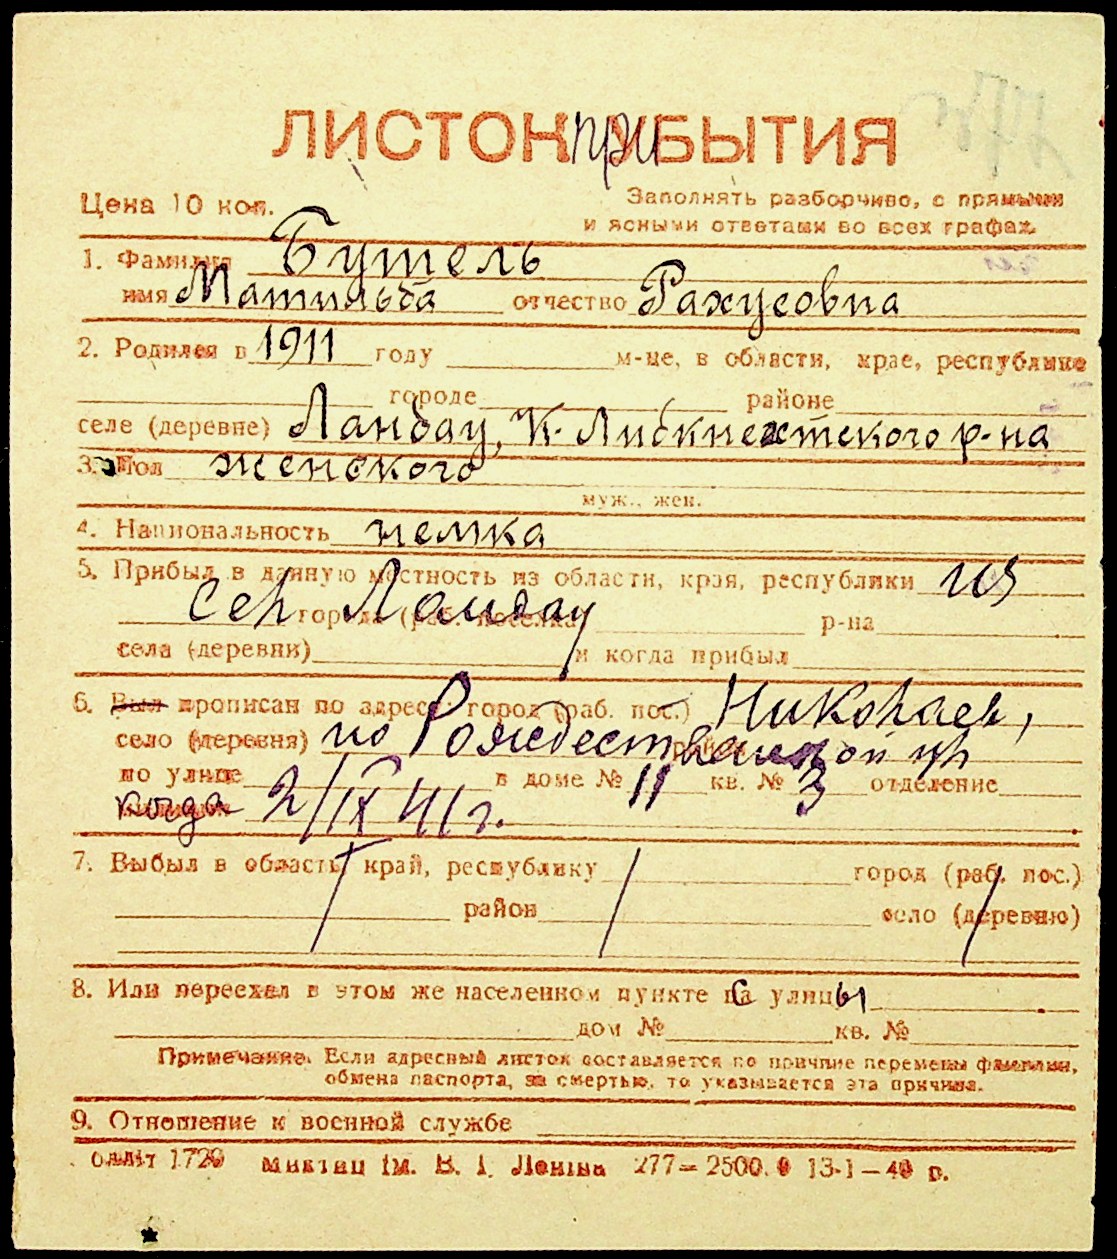 ЛИСТОК ПРИБЫТИЯ
Цена 10 коп.
Заполнять разборчиво, с прямыми
и ясными ответами во всех графах.
1. Фамилия Бутель
имя Матильда отчество
2. Родился в 1911 году м-це, в области, крае, республике
городе районе
селе (деревне) Ландау, К. Либкнехтского р-на
3. Пол женского
муж., жен.
4. Национальность немка
5. Прибыл в данную местность из области, края, республики из
сел Ландау города (раб. поселка) р-на
села (деревни) и когда прибыл
6. Был прописан по адресу: город (раб. пос.) Николаев,
село (деревня) по Рождественской
по улице в доме № 11 кв. № 3 отделение
когда 2/IX 41 г.
7. Выбыл в область, край, республику город (раб. пос.)
район село (деревню)
8. Или переехал в этом же населенном пункте с улицы
дом № кв. №
Примечание. Если адресный листок составляется по причине перемены фамилии,
обмена паспорта, за смертью, то указывается эта причина.
9. Отношение к военной службе
1720 ім. В. І. Леніна 277 — 2500. 13-1 — 40 р.